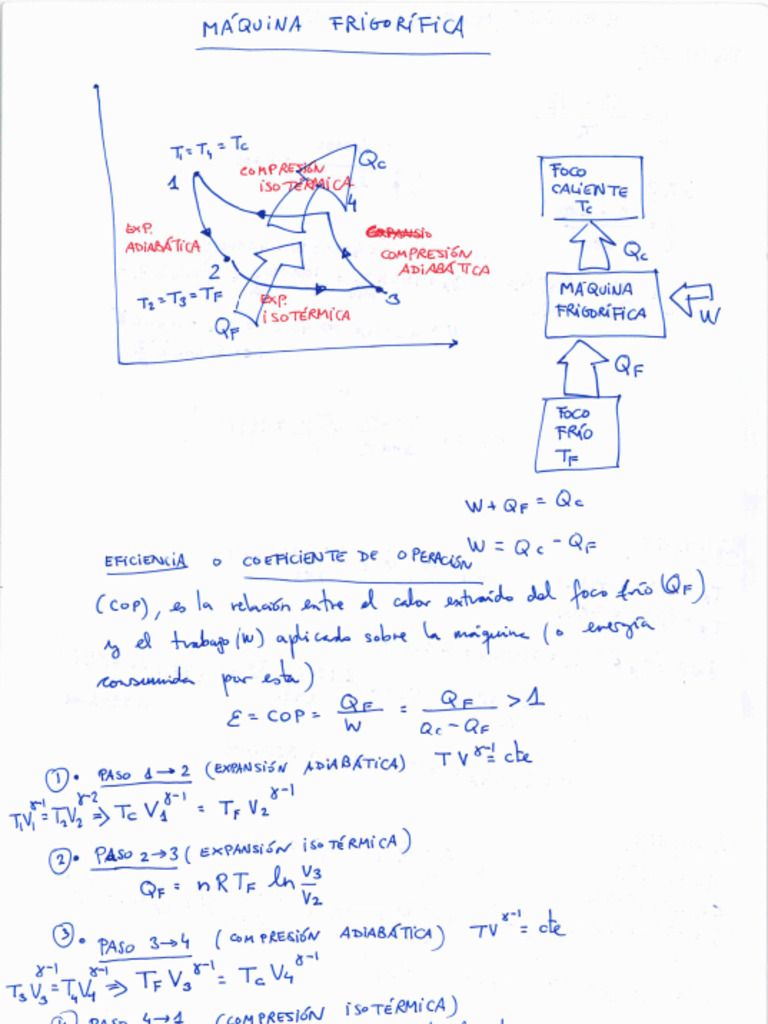 MÁQUINA FRIGORÍFICA
T₁ = T₄ = T_C
1
COMPRESIÓN
ISOTÉRMICA
Q_C
4
EXP.
ADIABÁTICA
2
EXPANSIO
COMPRESIÓN
ADIABÁTICA
T₂ = T₃ = T_F
EXP.
ISOTÉRMICA
3
Q_F
FOCO
CALIENTE
T_C
Q_C
MÁQUINA
FRIGORÍFICA
W
Q_F
FOCO
FRÍO
T_F
W + Q_F = Q_C
W = Q_C - Q_F
EFICIENCIA o COEFICIENTE DE OPERACIÓN
(COP), es la relación entre el calor extraído del foco frío (Q_F)
y el trabajo (W) aplicado sobre la máquina (o energía
consumida por esta)
ε = COP = Q_F/W = Q_F/(Q_C - Q_F) > 1
① • PASO 1→2 (EXPANSIÓN ADIABÁTICA) TV^(γ-1) = cte
T₁V₁^(γ-1) = T₂V₂^(γ-2) ⇒ T_C V₁^(γ-1) = T_F V₂^(γ-1)
② • PASO 2→3 (EXPANSIÓN ISOTÉRMICA)
Q_F = nRT_F ln V₃/V₂
③ • PASO 3→4 (COMPRESIÓN ADIABÁTICA) TV^(γ-1) = cte
T₃V₃^(γ-1) = T₄V₄^(γ-1) ⇒ T_F V₃^(γ-1) = T_C V₄^(γ-1)
④ • PASO 4→1 (COMPRESIÓN ISOTÉRMICA)